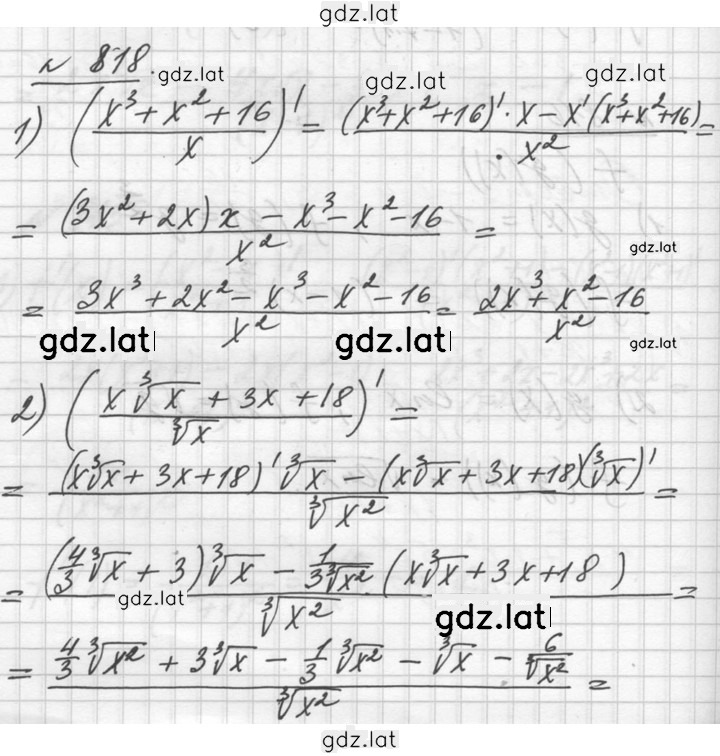 gdz.lat
№ 818 gdz.lat gdz.lat gdz.lat
1) ((x³ + x² + 16)/x)' = ((x³ + x² + 16)' · x − x'(x³ + x² + 16))/x² =
= ((3x² + 2x)x − x³ − x² − 16)/x² = gdz.lat
= (3x³ + 2x² − x³ − x² − 16)/x² = (2x³ + x² − 16)/x²
gdz.lat gdz.lat gdz.lat
2) ((x∛x + 3x + 18)/∛x)' =
= ((x∛x + 3x + 18)' ∛x − (x∛x + 3x + 18)(∛x)')/∛x² =
= ((4/3 ∛x + 3)∛x − 1/(3∛x²) (x∛x + 3x + 18))/∛x² =
gdz.lat gdz.lat
= (4/3 ∛x² + 3∛x − 1/3 ∛x² − ∛x − 6/∛x²)/∛x² =
gdz.lat